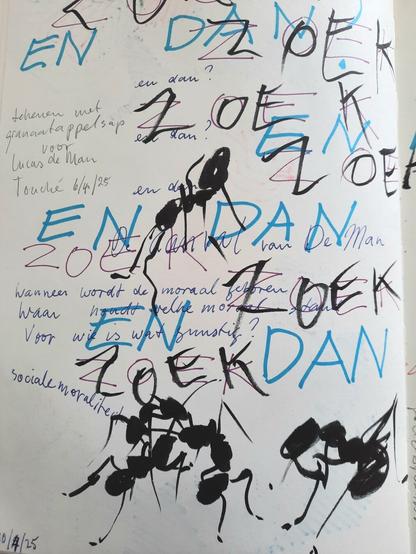 ZOEK
EN DAN
ZOEK
en dan?
tekenen met
granaatappelsap
voor
Lucas de Man
Touché 6/4/25
ZOEK
en dan?
EN
ZOEK
en da
EN DAN
De aanval van De Man
ZOEK
wanneer wordt de moraal geboren
ZOEK
Waar houdt welke moraal stand
EN
Voor wie is wat gunstig?
ZOEK DAN
sociale moraliteit
10/4/25